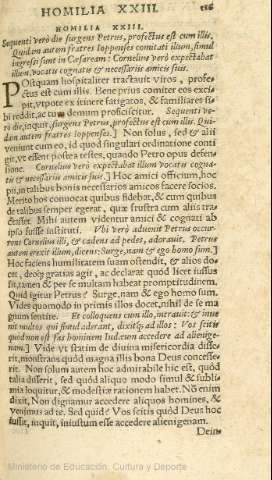 HOMILIA XXIII.
HOMILIA XXIII.
Sequenti verò die surgens Petrus, profectus est cum illis.
Quidam autem fratres Ioppenses comitati illum, simul
ingressi sunt in Cæsaream: Cornelius verò expectabat
illum, vocatis cognatis & necessariis amicis suis.
POstquam hospitaliter tractauit viros, profe-
ctus est cum illis. Bene prius comiter eos exci-
pit, vtpote ex itinere fatigatos, & familiares si-
bi reddit, ac tum demum proficiscitur. Sequenti ve-
rò die, inquit, surgens Petrus, profectus est cum illis. Qui-
dam autem fratres Ioppenses.] Non solus, sed & alij
veniunt cum eo, id quod singulari ordinatione conti-
git, vt essent postea testes, quando Petro opus defen-
sione. Cornelius verò expectabat illum vocatis cogna-
tis & necessariis amicis suis.] Hoc amici officium, hoc
pij, in talibus bonis necessarios amicos facere socios.
Meritò hos conuocat quibus fidebat, & cum quibus
de talibus semper egerat, quæ frustra cum aliis tra-
ctasset. Mihi autem videntur amici & cognati ab
ipso fuisse instituti. Vbi verò aduenit Petrus occur-
rens Cornelius illi, & cadens ad pedes, adorauit. Petrus
autem erexit illum, dicens: Surge, nam & ego homo sum.]
Hoc faciens humilitatem suam ostendit, & alios do-
cet, deoque gratias agit, ac declarat quòd licet iussus
sit, tamen & per se multam habeat promptitudinem.
Quid igitur Petrus? Surge, nam & ego homo sum.
Vides quomodo in primis illos docet, nihil de se ma-
gnum sentire. Et colloquens cum illo, intrauit: & inue-
nit multos qui simul aderant, dixitque ad illos: Vos scitis
quòd non est fas hominem Iudæum accedere ad alienige-
nam.] Vide vt statim de diuina misericordia disse-
rit, monstrans quòd magna illis bona Deus concesse-
rit. Non solum autem hoc admirabile hîc est, quòd
talia disserit, sed quòd aliquo modo simul & subli-
mia loquitur, & modestiæ rationem habet. Nõ enim
dixit, Non dignamur accedere aliquos homines, &
venimus ad te. Sed quid? Vos scitis quòd Deus hoc
iussit, inquit, iniustum esse accedere alienigenam.
Dein-
Ministerio de Educación, Cultura y Deporte